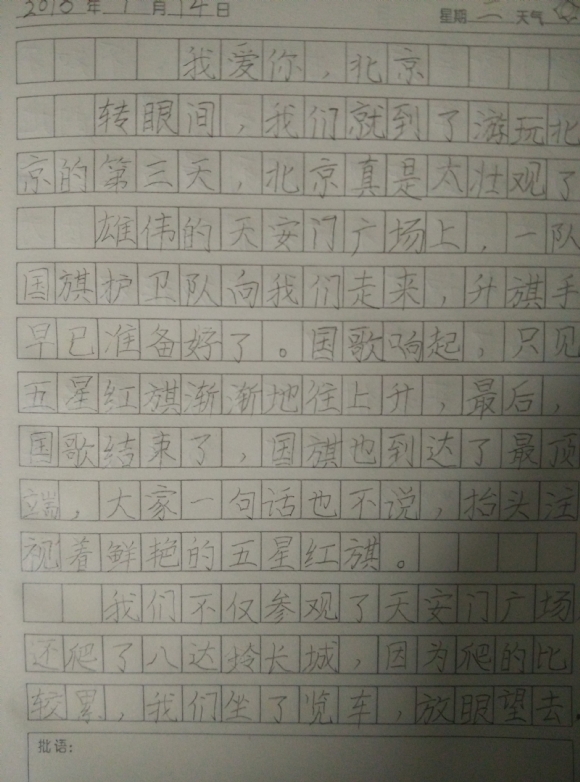 2016年1月14日 星期二 天气
我爱你，北京
转眼间，我们就到了游玩北
京的第三天，北京真是太壮观了
雄伟的天安门广场上，一队
国旗护卫队向我们走来，升旗手
早已准备好了。国歌响起，只见
五星红旗渐渐地往上升，最后，
国歌结束了，国旗也到达了最顶
端，大家一句话也不说，抬头注
视着鲜艳的五星红旗。
我们不仅参观了天安门广场
还爬了八达岭长城，因为爬的比
较累，我们坐了览车，放眼望去
批语：